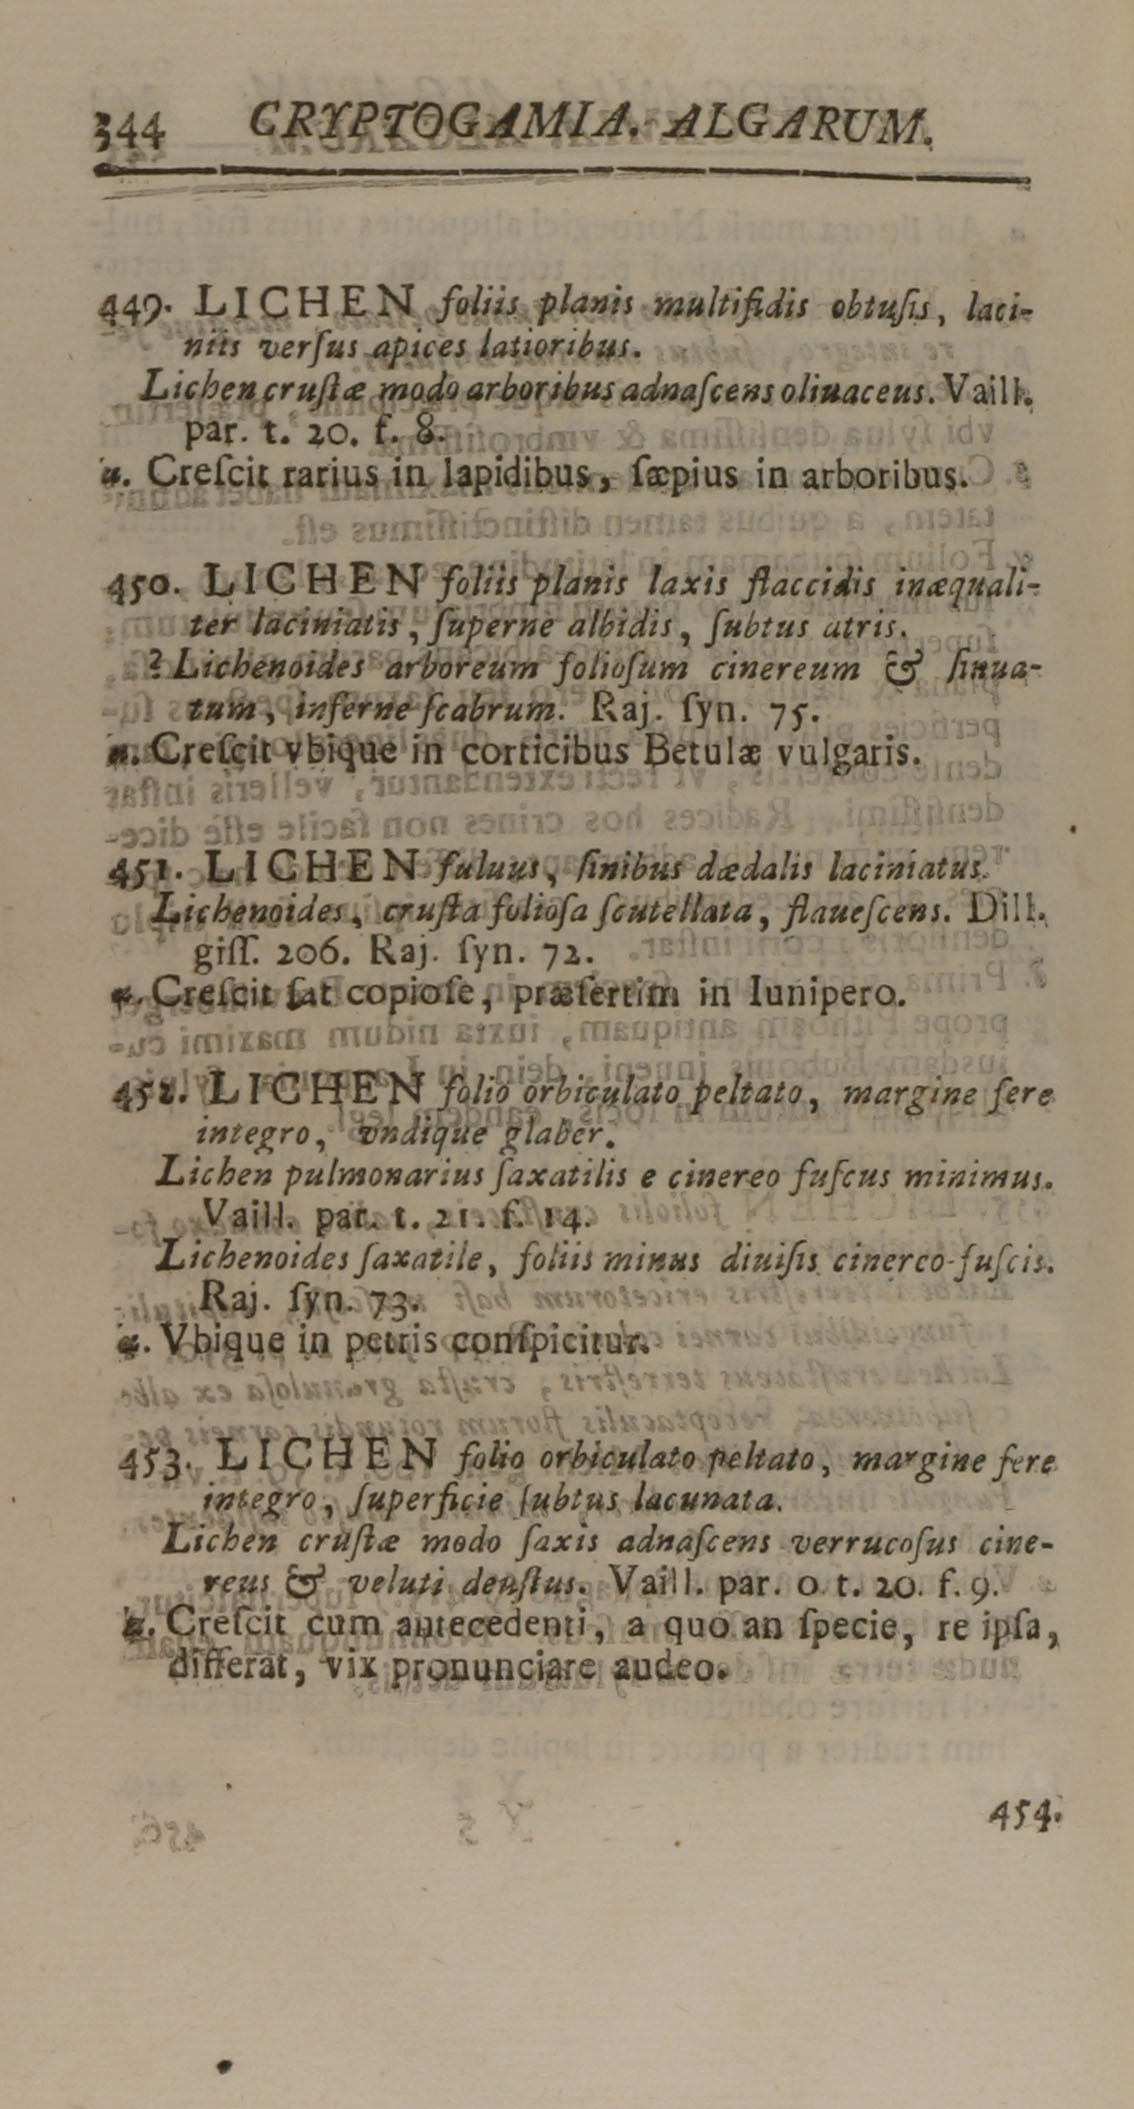 344 CRYPTOGAMIA. ALGARUM.
449. LICHEN foliis planis multifidis obtuſis, laci-
niis verſus apices latioribus.
Lichen cruſtæ modo arboribus adnaſcens oliuaceus. Vaill.
par. t. 20. f. 8.
α. Creſcit rarius in lapidibus, ſæpius in arboribus.
450. LICHEN foliis planis laxis flaccidis inæquali-
ter laciniatis, ſuperne albidis, ſubtus atris.
? Lichenoides arboreum folioſum cinereum & ſinua-
tum, inferne ſcabrum. Raj. ſyn. 75.
α. Creſcit vbique in corticibus Betulæ vulgaris.
451. LICHEN fuluus, ſinibus dædalis laciniatus.
Lichenoides, cruſta folioſa ſcutellata, flaueſcens. Dill.
giſſ. 206. Raj. ſyn. 72.
α. Creſcit ſat copioſe, præſertim in Iunipero.
452. LICHEN folio orbiculato peltato, margine fere
integro, vndique glaber.
Lichen pulmonarius ſaxatilis e cinereo fuſcus minimus.
Vaill. par. t. 21. f. 14.
Lichenoides ſaxatile, foliis minus diuiſis cinereo-fuſcis.
Raj. ſyn. 73.
α. Vbique in petris conſpicitur.
453. LICHEN folio orbiculato peltato, margine fere
integro, ſuperficie ſubtus lacunata.
Lichen cruſtæ modo ſaxis adnaſcens verrucoſus cine-
reus & veluti deuſtus. Vaill. par. o t. 20. f. 9.
α. Creſcit cum antecedenti, a quo an ſpecie, re ipſa,
differat, vix pronunciare audeo.
454.